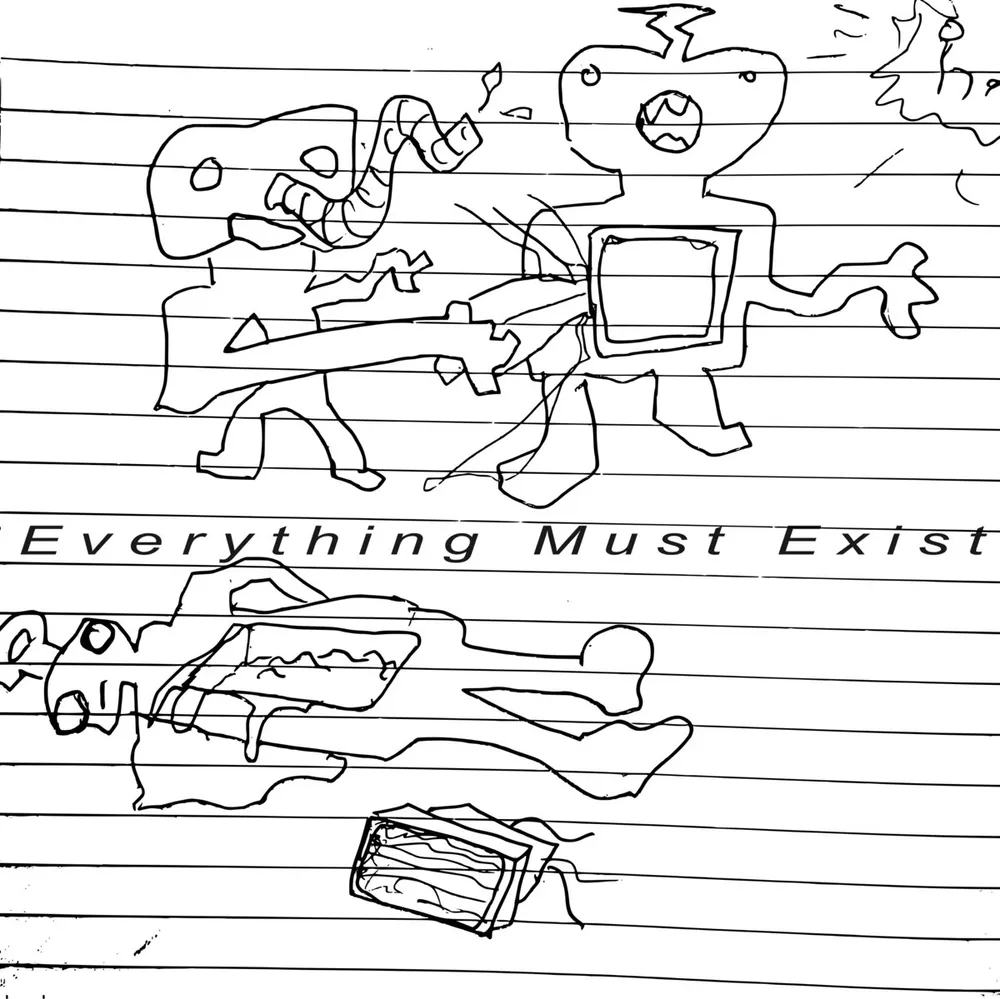 "Everything Must Exist